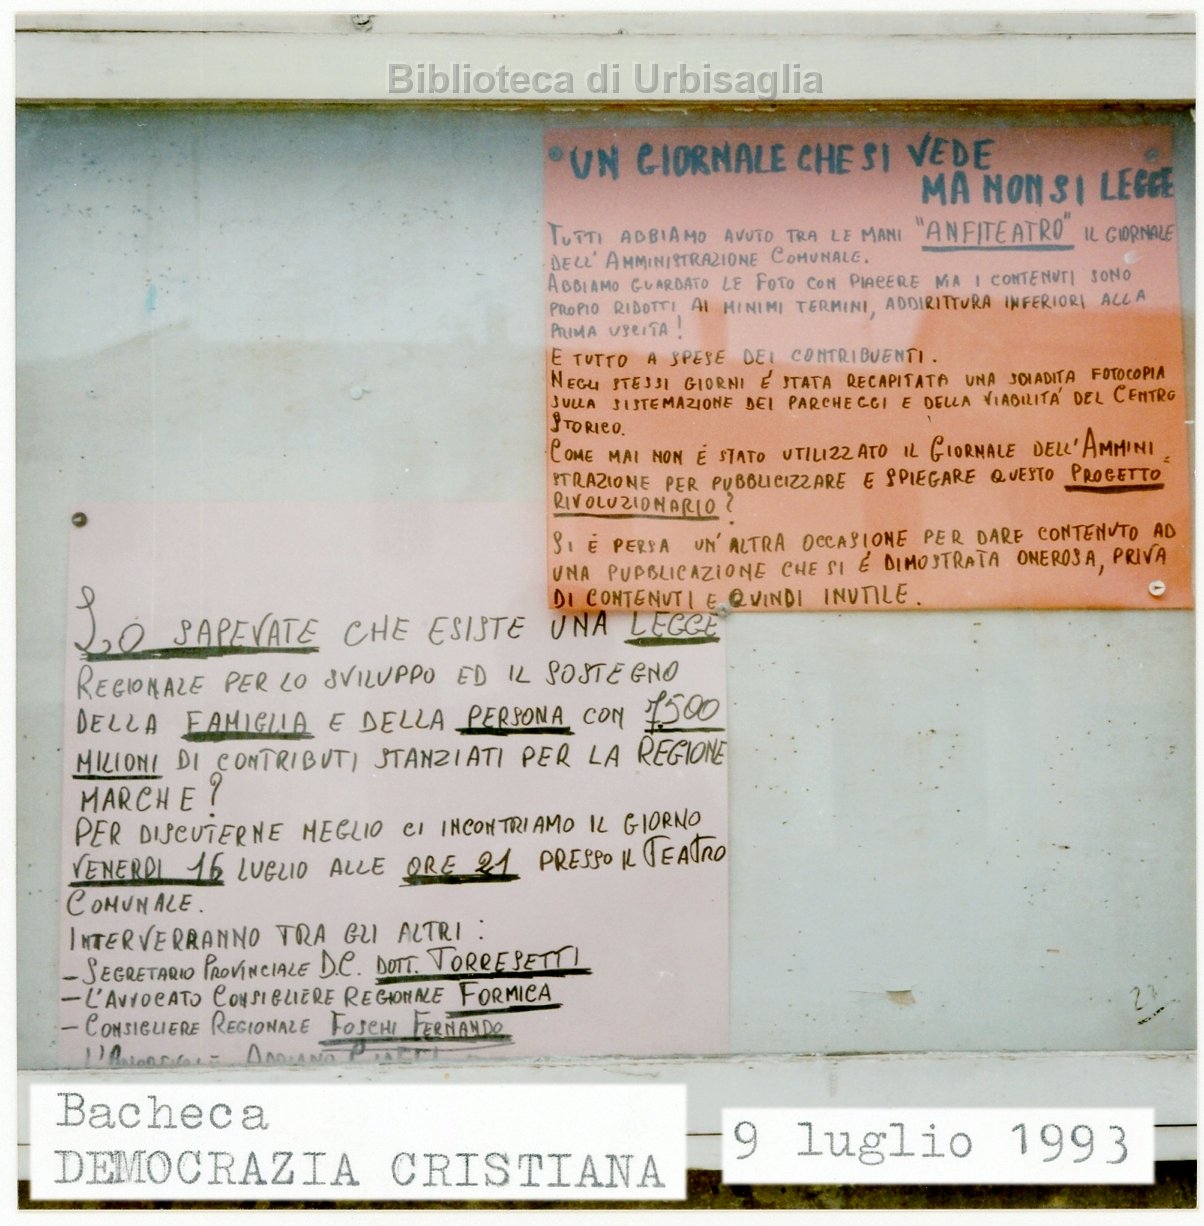 Biblioteca di Urbisaglia
UN GIORNALE CHE SI VEDE
MA NON SI LEGGE
TUTTI ABBIAMO AVUTO TRA LE MANI "ANFITEATRO" IL GIORNALE
DELL'AMMINISTRAZIONE COMUNALE.
ABBIAMO GUARDATO LE FOTO CON PIACERE MA I CONTENUTI SONO
PROPIO RIDOTTI AI MINIMI TERMINI, ADDIRITTURA INFERIORI ALLA
PRIMA USCITA!
E TUTTO A SPESE DEI CONTRIBUENTI.
NEGLI STESSI GIORNI É STATA RECAPITATA UNA SBIADITA FOTOCOPIA
SULLA SISTEMAZIONE DEI PARCHEGGI E DELLA VIABILITÁ DEL CENTRO
STORICO.
COME MAI NON É STATO UTILIZZATO IL GIORNALE DELL'AMMINI=
STRAZIONE PER PUBBLICIZZARE E SPIEGARE QUESTO PROGETTO
RIVOLUZIONARIO?
SI É PERSA UN'ALTRA OCCASIONE PER DARE CONTENUTO AD
UNA PUPBLICAZIONE CHE SI É DIMOSTRATA ONEROSA, PRIVA
DI CONTENUTI E QUINDI INUTILE.
LO SAPEVATE CHE ESISTE UNA LEGGE
REGIONALE PER LO SVILUPPO ED IL SOSTEGNO
DELLA FAMIGLIA E DELLA PERSONA CON 7500
MILIONI DI CONTRIBUTI STANZIATI PER LA REGIONE
MARCHE?
PER DISCUTERNE MEGLIO CI INCONTRIAMO IL GIORNO
VENERDI 16 LUGLIO ALLE ORE 21 PRESSO IL TEATRO
COMUNALE.
INTERVERRANNO TRA GLI ALTRI:
- SEGRETARIO PROVINCIALE D.C. DOTT. TORRESETTI
- L'AVVOCATO CONSIGLIERE REGIONALE FORMICA
- CONSIGLIERE REGIONALE FOSCHI FERNANDO
L'ONOREVOLE ADRIANO CIAFFI
Bacheca
DEMOCRAZIA CRISTIANA
9 luglio 1993